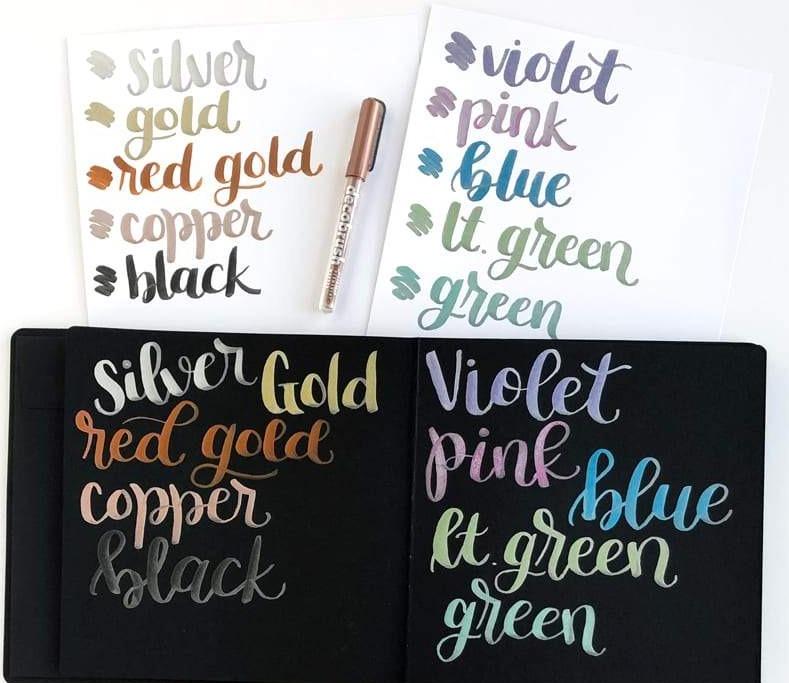 silver
gold
red gold
copper
black
decobrush
violet
pink
blue
lt. green
green
Silver Gold
red gold
copper
black
Violet
pink
blue
lt. green
green